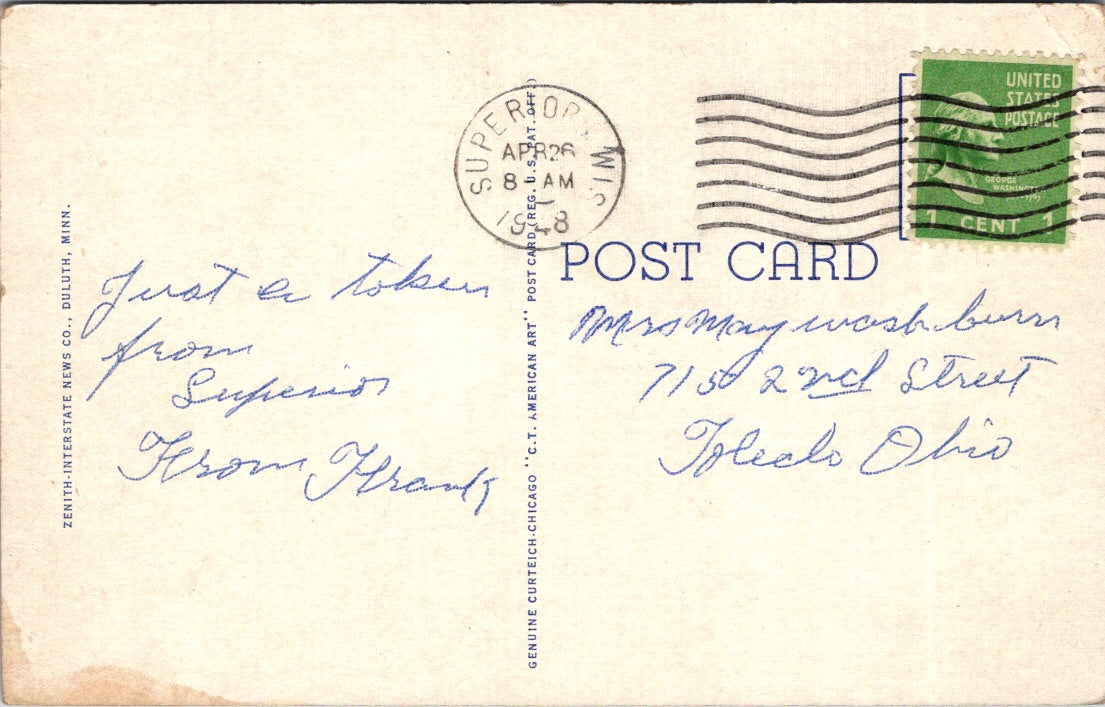 ZENITH-INTERSTATE NEWS CO., DULUTH, MINN.
Just a token
from
Superior
From Frank
GENUINE CURTEICH-CHICAGO "C.T. AMERICAN ART" POST CARD (REG. U.S. PAT. OFF.)
SUPERIOR, WIS.
APR 26
8 AM
1948
UNITED
STATES
POSTAGE
GEORGE
WASHINGTON
1 CENT 1
POST CARD
Mrs May washburn
715 2nd Street
Toledo Ohio